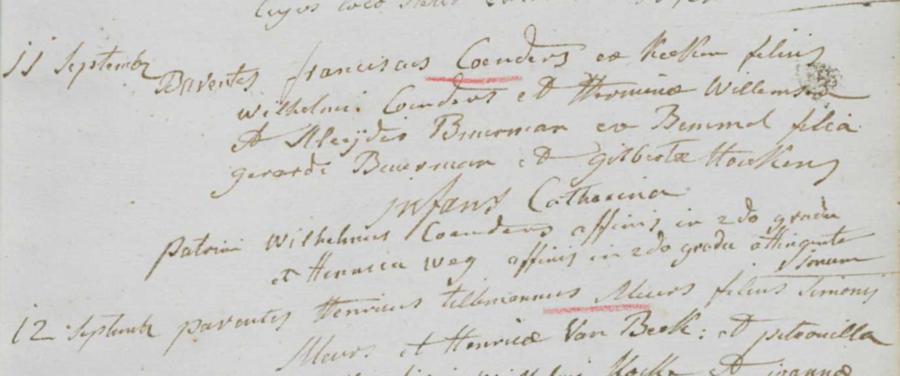 11 Septembr Parentes franciscus Coenders ex Keeken filius
Wilhelmi Coenders et Herminae Willemsen
et Aleijdis Buurman ex Bemmel filia
gerardi Buurman et gilbertae Hoeken
infans Catharina
patrini Wilhelmus Coenders affinis in 2do gradu
et Henrica weg affinis in 2do gradu attingente
12 Septembr parentes Henricus tillmannus Meurs filius Simonis
Meurs et Henricae Van Beek: et petronilla
et joannae